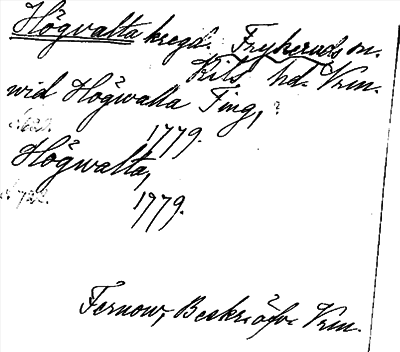 Högvalta kregd. Frykeruds sn.
Kils hd. Vrm.
wid Högwalla Ting,
s. 622. 1779.
Högwalta,
1779.
Fernow, Beskr. öfv. Vrm.